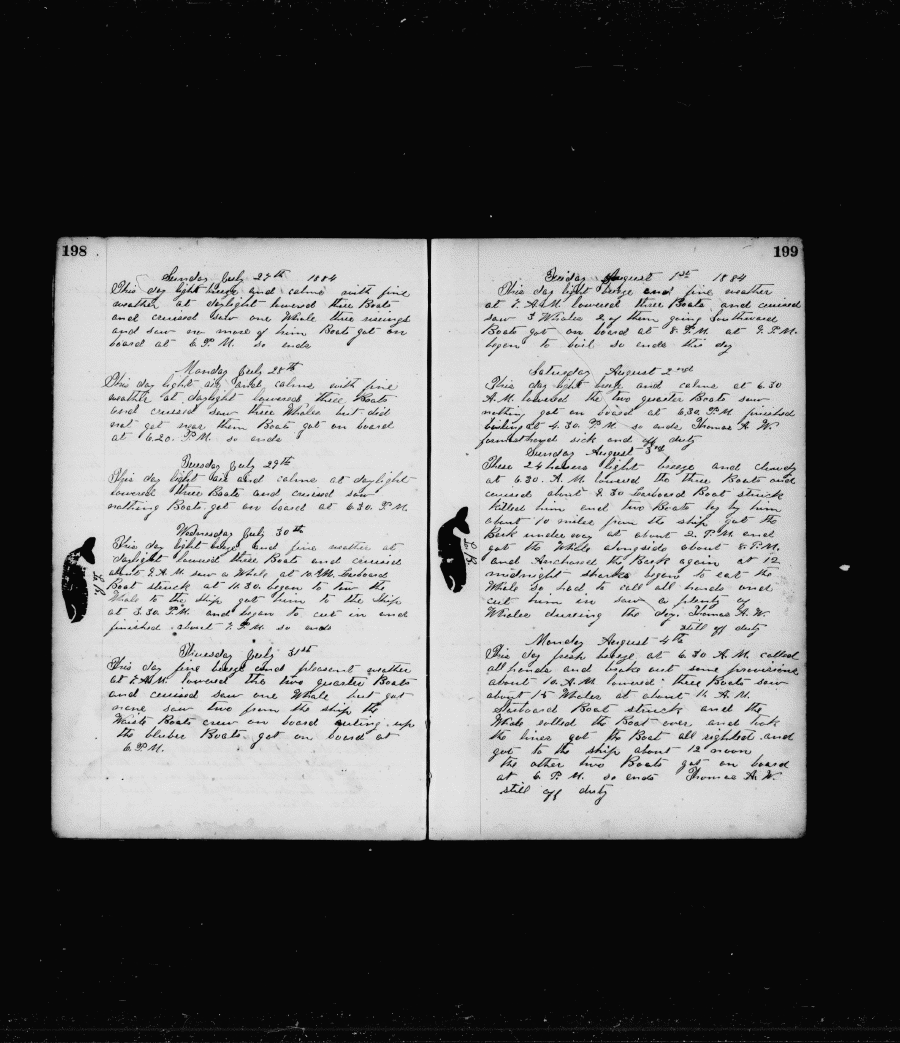 198
Sunday July 27th 1884
This day light breeze and calms with fine
weather at daylight lowered three Boats
and cruised saw one Whale three risings
and saw no more of him Boats got on
board at 6 P.M. so ends
Monday July 28th
This day light air and calms with fine
weather at daylight lowered three Boats
and cruised saw three Whales but did
not get near them Boats got on board
at 6.20. P.M. so ends
Tuesday July 29th
This day light air and calms at daylight
lowered three Boats and cruised saw
nothing Boats got on board at 6.30. P.M.
Wednesday July 30th
This day light breeze and fine weather at
daylight lowered three Boats and cruised
about 9. A.M. saw a Whale at 10 A.M. Larboard
Boat struck at 11.30. began to tow the
Whale to the ship got him to the Ship
at 3.30. P.M. and began to cut in and
finished about 7. P.M. so ends
Thursday July 31st
This day fine breeze and pleasent weather
at 7. A.M. lowered the two quarter Boats
and cruised saw one Whale but got
none saw two from the ship the
Waiste Boats crew on board cuting up
the bluber Boats got on board at
6. P.M.
199
Friday August 1st 1884
This day light breeze and fine weather
at 7. A.M. lowered three Boats and cruised
saw 3 Whales 2 of them going Southward
Boats got on board at 8. P.M. at 9. P.M.
began to boil so ends this day
Saturday August 2nd
This day light breeze and calms at 6.30
A.M. lowered the two quarter Boats saw
nothing got on board at 6.30. P.M. finished
boiling at 4.30. P.M. so ends Thomas A. W.
foremasthand sick and off duty
Sunday August 3rd
These 24 hours light breeze and cloudy
at 6.30. A.M. lowered the three Boats and
cruised about 8.30 Larboard Boat struck
killed him and two Boats lay by him
about 10 miles from the ship got the
Bark under way at about 2. P.M. and
got the Whale alongside about 8. P.M.
and Anchored the Bark again at 12
midnight sharks began to eat the
Whale so had to call all hands and
cut him in saw a plenty of
Whales durring the day. Thomas A. W.
still off duty
Monday August 4th
This day fresh breeze at 6.30 A.M. called
all hands and broke out some provisions
about 10. A.M. lowered three Boats saw
about 15 Whales at about 11. A.M.
Starboard Boat struck and the
Whale rolled the Boat over and took
the lines got the Boat all righted and
got to the ship about 12 noon
the other two Boats got on board
at 6 P.M. so ends Thomas A. W.
still off duty